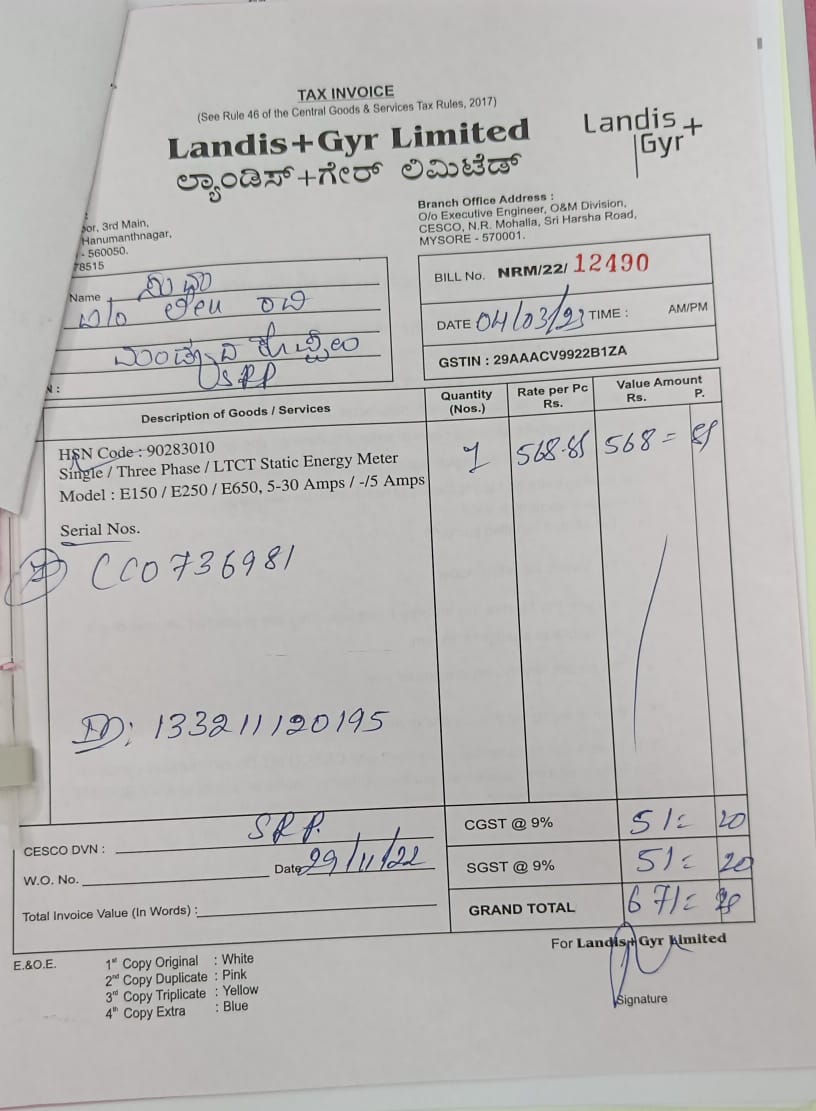 TAX INVOICE
(See Rule 46 of the Central Goods & Services Tax Rules, 2017)
Landis+Gyr Limited
ಲ್ಯಾಂಡಿಸ್+ಗೇರ್ ಲಿಮಿಟೆಡ್
Landis+
Gyr
3rd Main,
Hanumanthnagar,
- 560050.
78515
Branch Office Address :
O/o Executive Engineer, O&M Division,
CESCO, N.R. Mohalla, Sri Harsha Road,
MYSORE - 570001.
Name
BILL No. NRM/22/ 12490
DATE 04/03/23 TIME : AM/PM
GSTIN : 29AAACV9922B1ZA
Description of Goods / Services
Quantity (Nos.)
Rate per Pc Rs.
Value Amount Rs. P.
HSN Code : 90283010
Single / Three Phase / LTCT Static Energy Meter
Model : E150 / E250 / E650, 5-30 Amps / -/5 Amps
1 568.85 568=
Serial Nos.
CC0736981
ID: 133211120195
CESCO DVN : SRP.
W.O. No. Date 29/11/22
Total Invoice Value (In Words) :
CGST @ 9% 51= 20
SGST @ 9% 51= 20
GRAND TOTAL 671=
E.&O.E.
1st Copy Original : White
2nd Copy Duplicate : Pink
3rd Copy Triplicate : Yellow
4th Copy Extra : Blue
For Landis+Gyr Limited
Signature